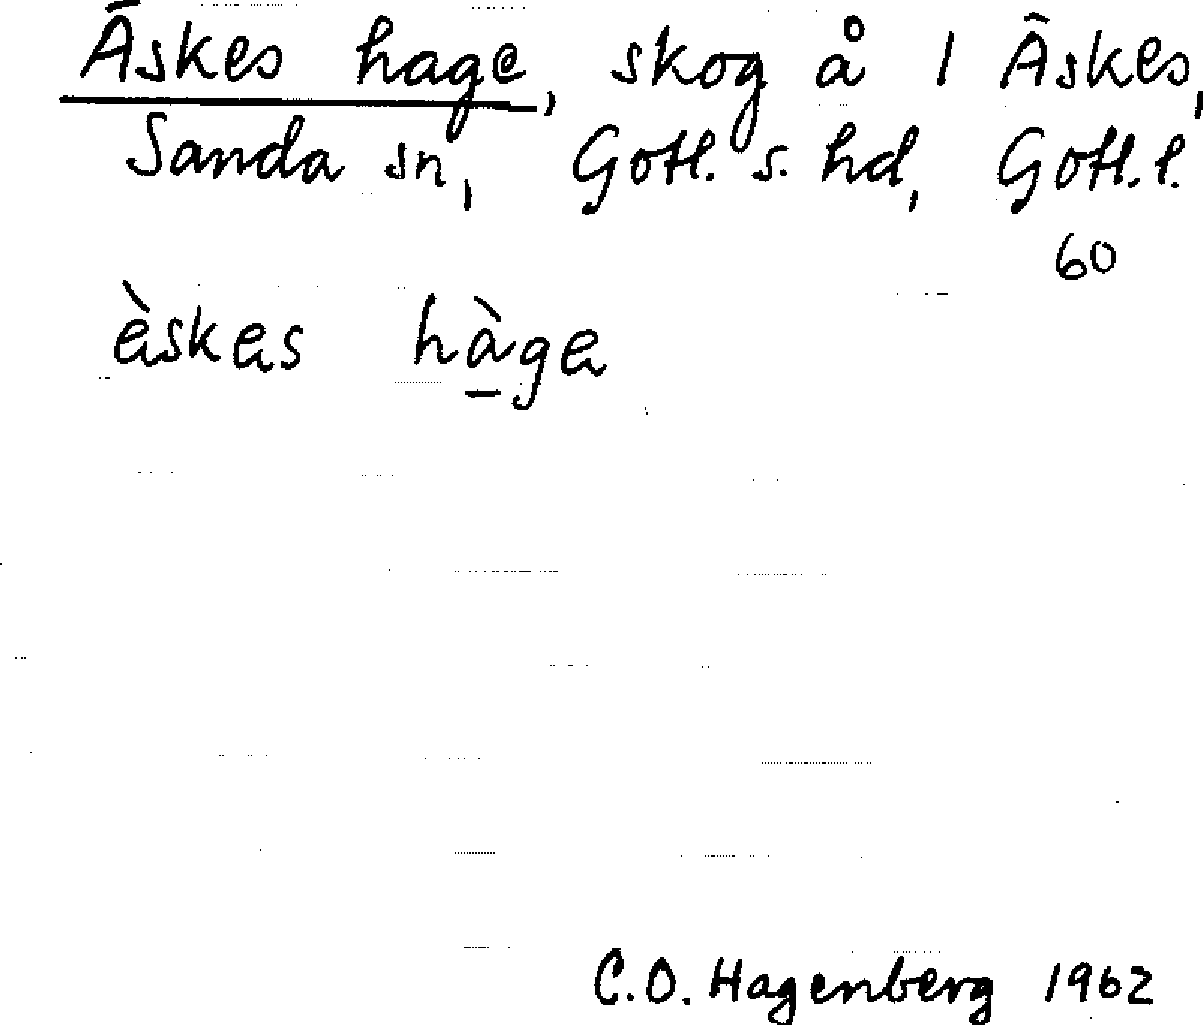 Äskes hage, skog å 1 Äskes,
Sanda sn, Gotl. s. hd, Gotl. l.
60
èskes hàge
C.O. Hagenberg 1962